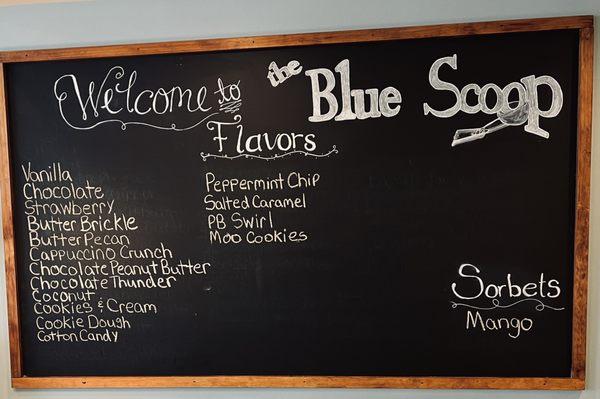 Welcome to the Blue Scoop
Flavors
Vanilla
Chocolate
Strawberry
Butter Brickle
Butter Pecan
Cappuccino Crunch
Chocolate Peanut Butter
Chocolate Thunder
Coconut
Cookies & Cream
Cookie Dough
Cotton Candy
Peppermint Chip
Salted Caramel
PB Swirl
Moo Cookies
Sorbets
Mango